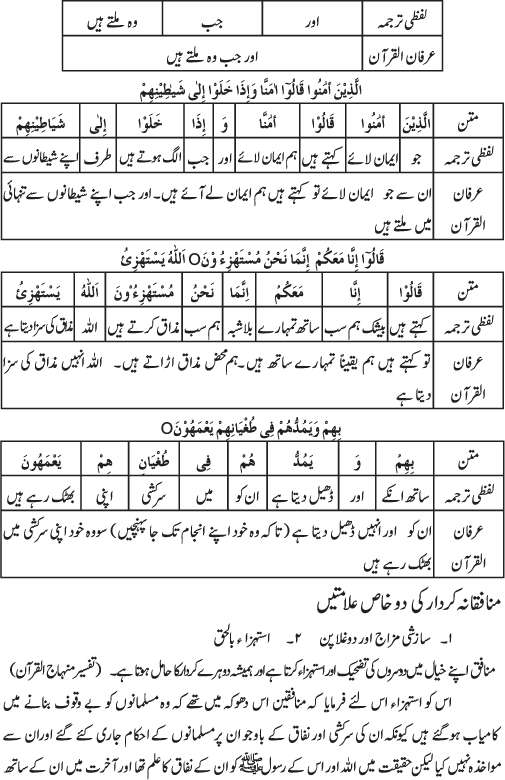 لفظی ترجمہ اور جب وہ ملتے ہیں
عرفان القرآن اور جب وہ ملتے ہیں
الَّذِيْنَ اٰمَنُوا قَالُوْٓا اٰمَنَّا وَاِذَا خَلَوْا اِلٰى شَيٰطِيْنِهِمْ
متن الَّذِيْنَ اٰمَنُوا قَالُوْٓا اٰمَنَّا وَ اِذَا خَلَوْا اِلٰى شَيَاطِيْنِهِمْ
لفظی ترجمہ جو ایمان لائے کہتے ہیں ہم ایمان لائے اور جب الگ ہوتے ہیں طرف اپنے شیطانوں سے
عرفان ان سے جو ایمان لائے تو کہتے ہیں ہم ایمان لے آئے ہیں۔ اور جب اپنے شیطانوں سے تنہائی
القرآن میں ملتے ہیں
قَالُوْٓا اِنَّا مَعَكُمْ اِنَّمَا نَحْنُ مُسْتَهْزِءُوْنَO اَللهُ يَسْتَهْزِئُ
متن قَالُوْٓا اِنَّا مَعَكُمْ اِنَّمَا نَحْنُ مُسْتَهْزِءُوْنَ اَللهُ يَسْتَهْزِئُ
لفظی ترجمہ کہتے ہیں بیشک ہم سب ساتھ تمہارے بلاشبہ ہم سب مذاق کرتے ہیں اللہ مذاق کی سزا دیتا ہے
عرفان تو کہتے ہیں ہم یقیناً تمہارے ساتھ ہیں۔ ہم محض مذاق اڑاتے ہیں۔ اللہ انہیں مذاق کی سزا
القرآن دیتا ہے
بِهِمْ وَيَمُدُّهُمْ فِى طُغْيَانِهِمْ يَعْمَهُوْنَO
متن بِهِمْ وَ يَمُدُّ هُمْ فِى طُغْيَانِ هِمْ يَعْمَهُوْنَ
لفظی ترجمہ ساتھ انکے اور ڈھیل دیتا ہے ان کو میں سرکشی اپنی بھٹک رہے ہیں
عرفان ان کو اور انہیں ڈھیل دیتا ہے (تا کہ وہ خود اپنے انجام تک جا پہنچیں) سو وہ خود اپنی سرکشی میں
القرآن بھٹک رہے ہیں
منافقانہ کردار کی دو خاص علامتیں
۱۔ سازشی مزاج اور دوغلا پن ۲۔ استہزاء بالحق
منافق اپنے خیال میں دوسروں کی تضحیک اور استہزاء کرتا ہے اور ہمیشہ دوہرے کردار کا حامل ہوتا ہے۔ (تفسیر منہاج القرآن)
اس کو استہزاء اس لئے فرمایا کہ منافقین اس دھوکہ میں تھے کہ وہ مسلمانوں کو بے وقوف بنانے میں
کامیاب ہو گئے ہیں کیونکہ ان کی سرکشی اور نفاق کے باوجود ان پر مسلمانوں کے احکام جاری کئے گئے اور ان سے
مواخذہ نہیں کیا لیکن حقیقت میں اللہ اور اس کے رسول ﷺ کو ان کے نفاق کا علم تھا اور آخرت میں ان کے ساتھ